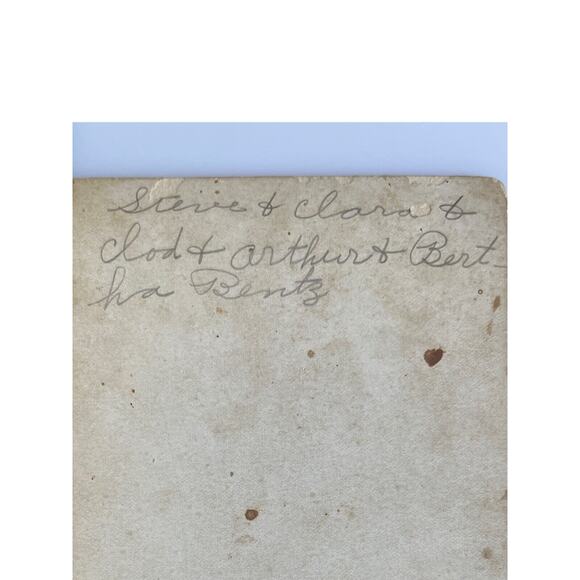 Steve & Clara &
Clod & Arthur & Bert-
ha Bentz